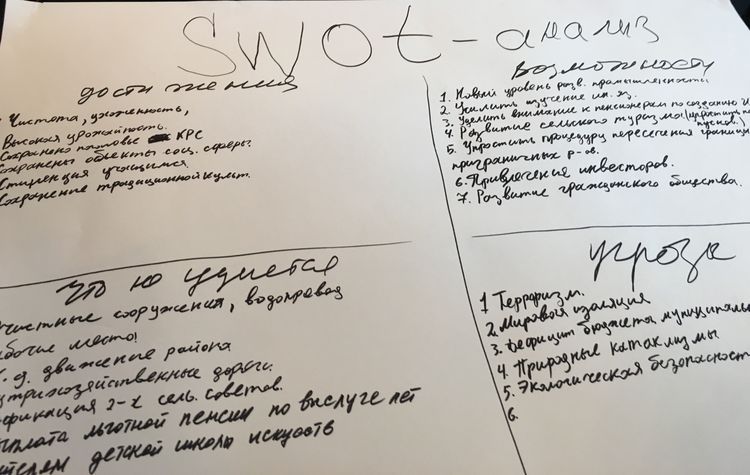 SWOT - анализ
достижения
Чистота, ухоженность,
Высокая урожайность.
Сохранено КРС
Сохранены объекты соц. сферы.
учащимся.
Сохранение традиционной культ.
Возможности
1. Новый уровень разв. промышленности
2. Усилить изучение ин. яз.
3. Уделить внимание к пенсионерам по созданию
4. Развитие сельского туризма (упрощ
5. Упростить процедуру пересечения границ
приграничных р-ов.
6. Привлечение инвесторов.
7. Развитие гражданского общества.
Что не удается
чистные сооружения, водопровод
бочие места!
д. движение района
утрихозяйственные дороги.
фикация 2-х сель. советов.
ыплата льготной пенсии по выслуге лет
телям детской школы искусств
угрозы
1 Терроризм.
2. Мировая изоляция
3. Дефицит бюджета муниципальн
4. Природные катаклизмы
5. Экологическая безопасност
6.